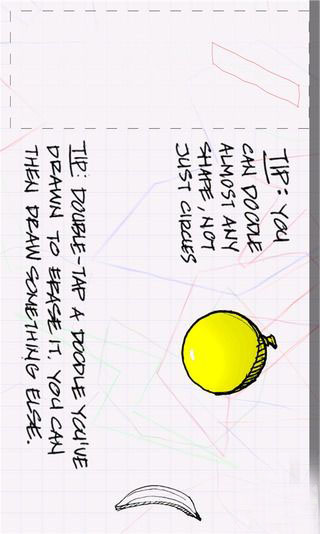 TIP: YOU
CAN DOODLE
ALMOST ANY
SHAPE, NOT
JUST CIRCLES
TIP: DOUBLE-TAP A DOODLE YOU'VE
DRAWN TO ERASE IT. YOU CAN
THEN DRAW SOMETHING ELSE.